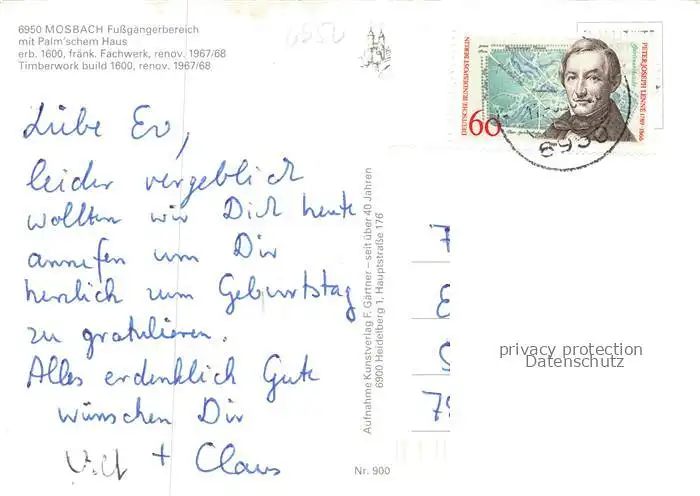 6950 MOSBACH Fußgängerbereich
mit Palm'schem Haus
erb. 1600, fränk. Fachwerk, renov. 1967/68
Timberwork build 1600, renov. 1967/68
Liebe Ev,
leider vergeblich
wollten wir Dich heute
anrufen um Dir
herzlich zum Geburtstag
zu gratulieren.
Alles erdenklich Gute
wünschen Dir
+ Claus
Aufnahme Kunstverlag F. Gärtner – seit über 40 Jahren
6900 Heidelberg 1, Hauptstraße 178
Nr. 900
DEUTSCHE BUNDESPOST BERLIN
60
PETER JOSEPH LENNÉ 1789-1866
privacy protection
Datenschutz